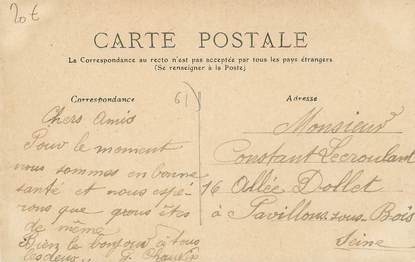 20€
CARTE POSTALE
La Correspondance au recto n'est pas acceptée par tous les pays étrangers
(Se renseigner à la Poste)
Correspondance
61
Adresse
Chers Amis
Pour le moment
nous sommes en bonne
santé et nous espé-
rons que vous êtes
de même
Bien le bonjour à tous
les deux
Monsieur
Constant Lecroulant
16 Allée Dollet
à Pavillons-sous-Bois
Seine